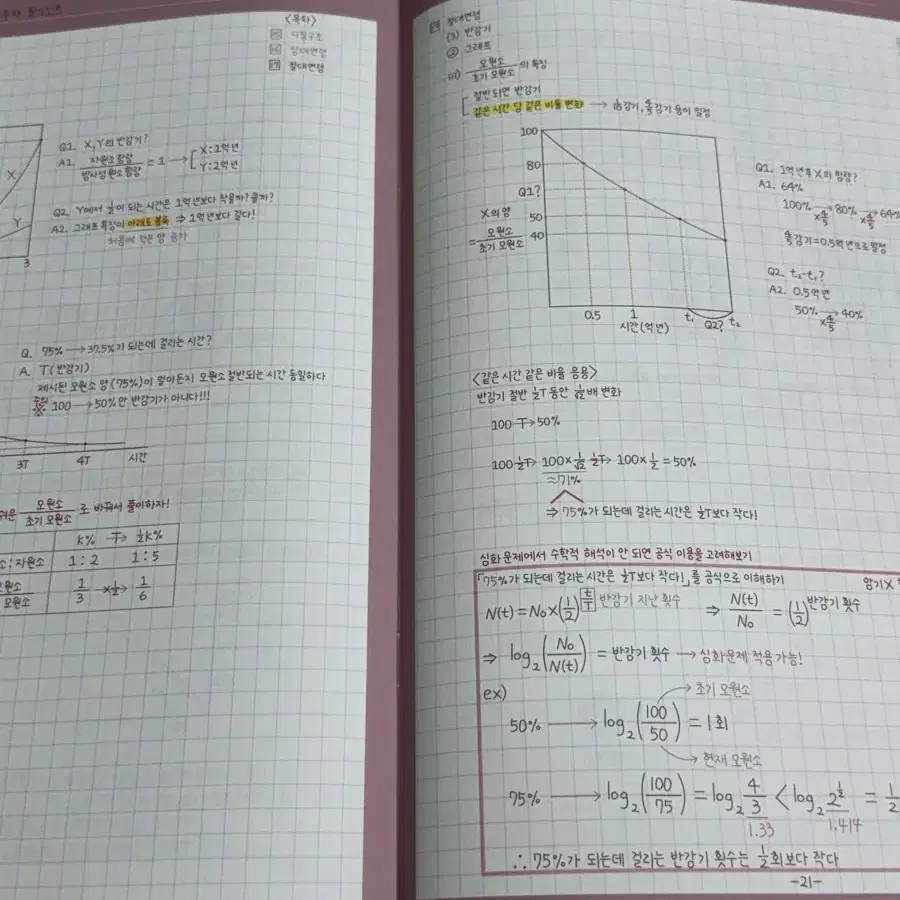 <목차>
15 지질구조
16 상대연령
17 절대연령
X
Y
3
Q1. X, Y의 반감기?
A1. 자원소 함량 / 방사성 원소 함량 = 1 → [ X: 1억년
Y: 2억년
Q2. Y에서 ½이 되는 시간은 1억년보다 작을까? 클까?
A2. 그래프 특징이 아래로 볼록 ⇒ 1억년보다 길다!
처음에 작은 양 증가
Q. 75% → 37.5%가 되는데 걸리는 시간?
A. T(반감기)
제시된 모원소 양(75%)이 얼마든지 모원소 절반되는 시간 동일하다
주의 ※ 100 → 50%만 반감기가 아니다!!!
3T 4T 시간
쉬운 모원소 / 초기 모원소 로 바꿔서 풀이하자!
k% -T→ ½k%
소:자원소 1:2 1:5
모원소 / 모원소 1/3 ×½→ 1/6
17 절대연령
(3) 반감기
② 그래프
iii) 모원소 / 초기 모원소 의 특징
[ 절반되면 반감기
같은 시간 당 같은 비율 변화 → 1/10감기, 4/5감기 등이 일정
100
80
Q1?
50
40
X의 양
= 모원소 / 초기 모원소
0.5 1 t₁ Q2? t₂
시간(억년)
Q1. 1억년 후 X의 함량?
A1. 64%
100% →×4/5 80% →×4/5 64%
4/5감기=0.5억년으로 일정
Q2. t₂-t₁?
A2. 0.5억년
50% →×4/5 40%
<같은 시간 같은 비율 응용>
반감기 절반 ½T 동안 1/√2배 변화
100 -T→ 50%
100 -½T→ 100×1/√2 -½T→ 100×½ = 50%
≈71%
⇒ 75%가 되는데 걸리는 시간은 ½T보다 작다!
심화 문제에서 수학적 해석이 안 되면 공식 이용을 고려해보기
「75%가 되는데 걸리는 시간은 ½T보다 작다!」를 공식으로 이해하기 암기X
N(t)=N₀×(1/2)^(t/T) 반감기 지난 횟수 ⇒ N(t)/N₀ = (1/2)^반감기 횟수
⇒ log₂(N₀/N(t)) = 반감기 횟수 → 심화문제 적용 가능!
ex)
초기 모원소
50% → log₂(100/50) = 1회
현재 모원소
75% → log₂(100/75) = log₂ 4/3 < log₂ 2^½ = 1/2
1.33 1.414
∴ 75%가 되는데 걸리는 반감기 횟수는 ½회보다 작다
-21-